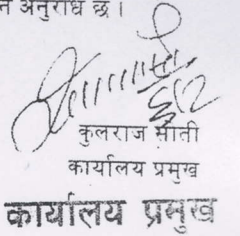 न अनुरोध छ।
कुलराज माती
कार्यालय प्रमुख
कार्यालय प्रमुख